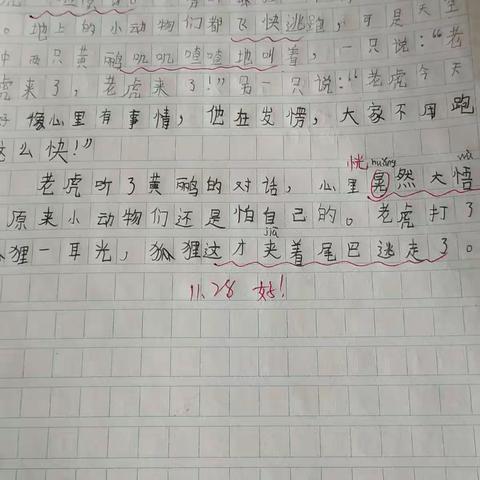 。地上的小动物们都飞快逃跑,可是天空
中两只黄鹂叽叽喳喳地叫着,一只说:“老
虎来了,老虎来了!”另一只说:“老虎今天
好像心里有事情,他在发愣,大家不用跑
这么快!”
恍 huǎng wù
老虎听了黄鹂的对话,心里晃然大悟
原来小动物们还是怕自己的。老虎打了
狐狸一耳光,狐狸这才夹着尾巴逃走了。
jiā
11.28 好!